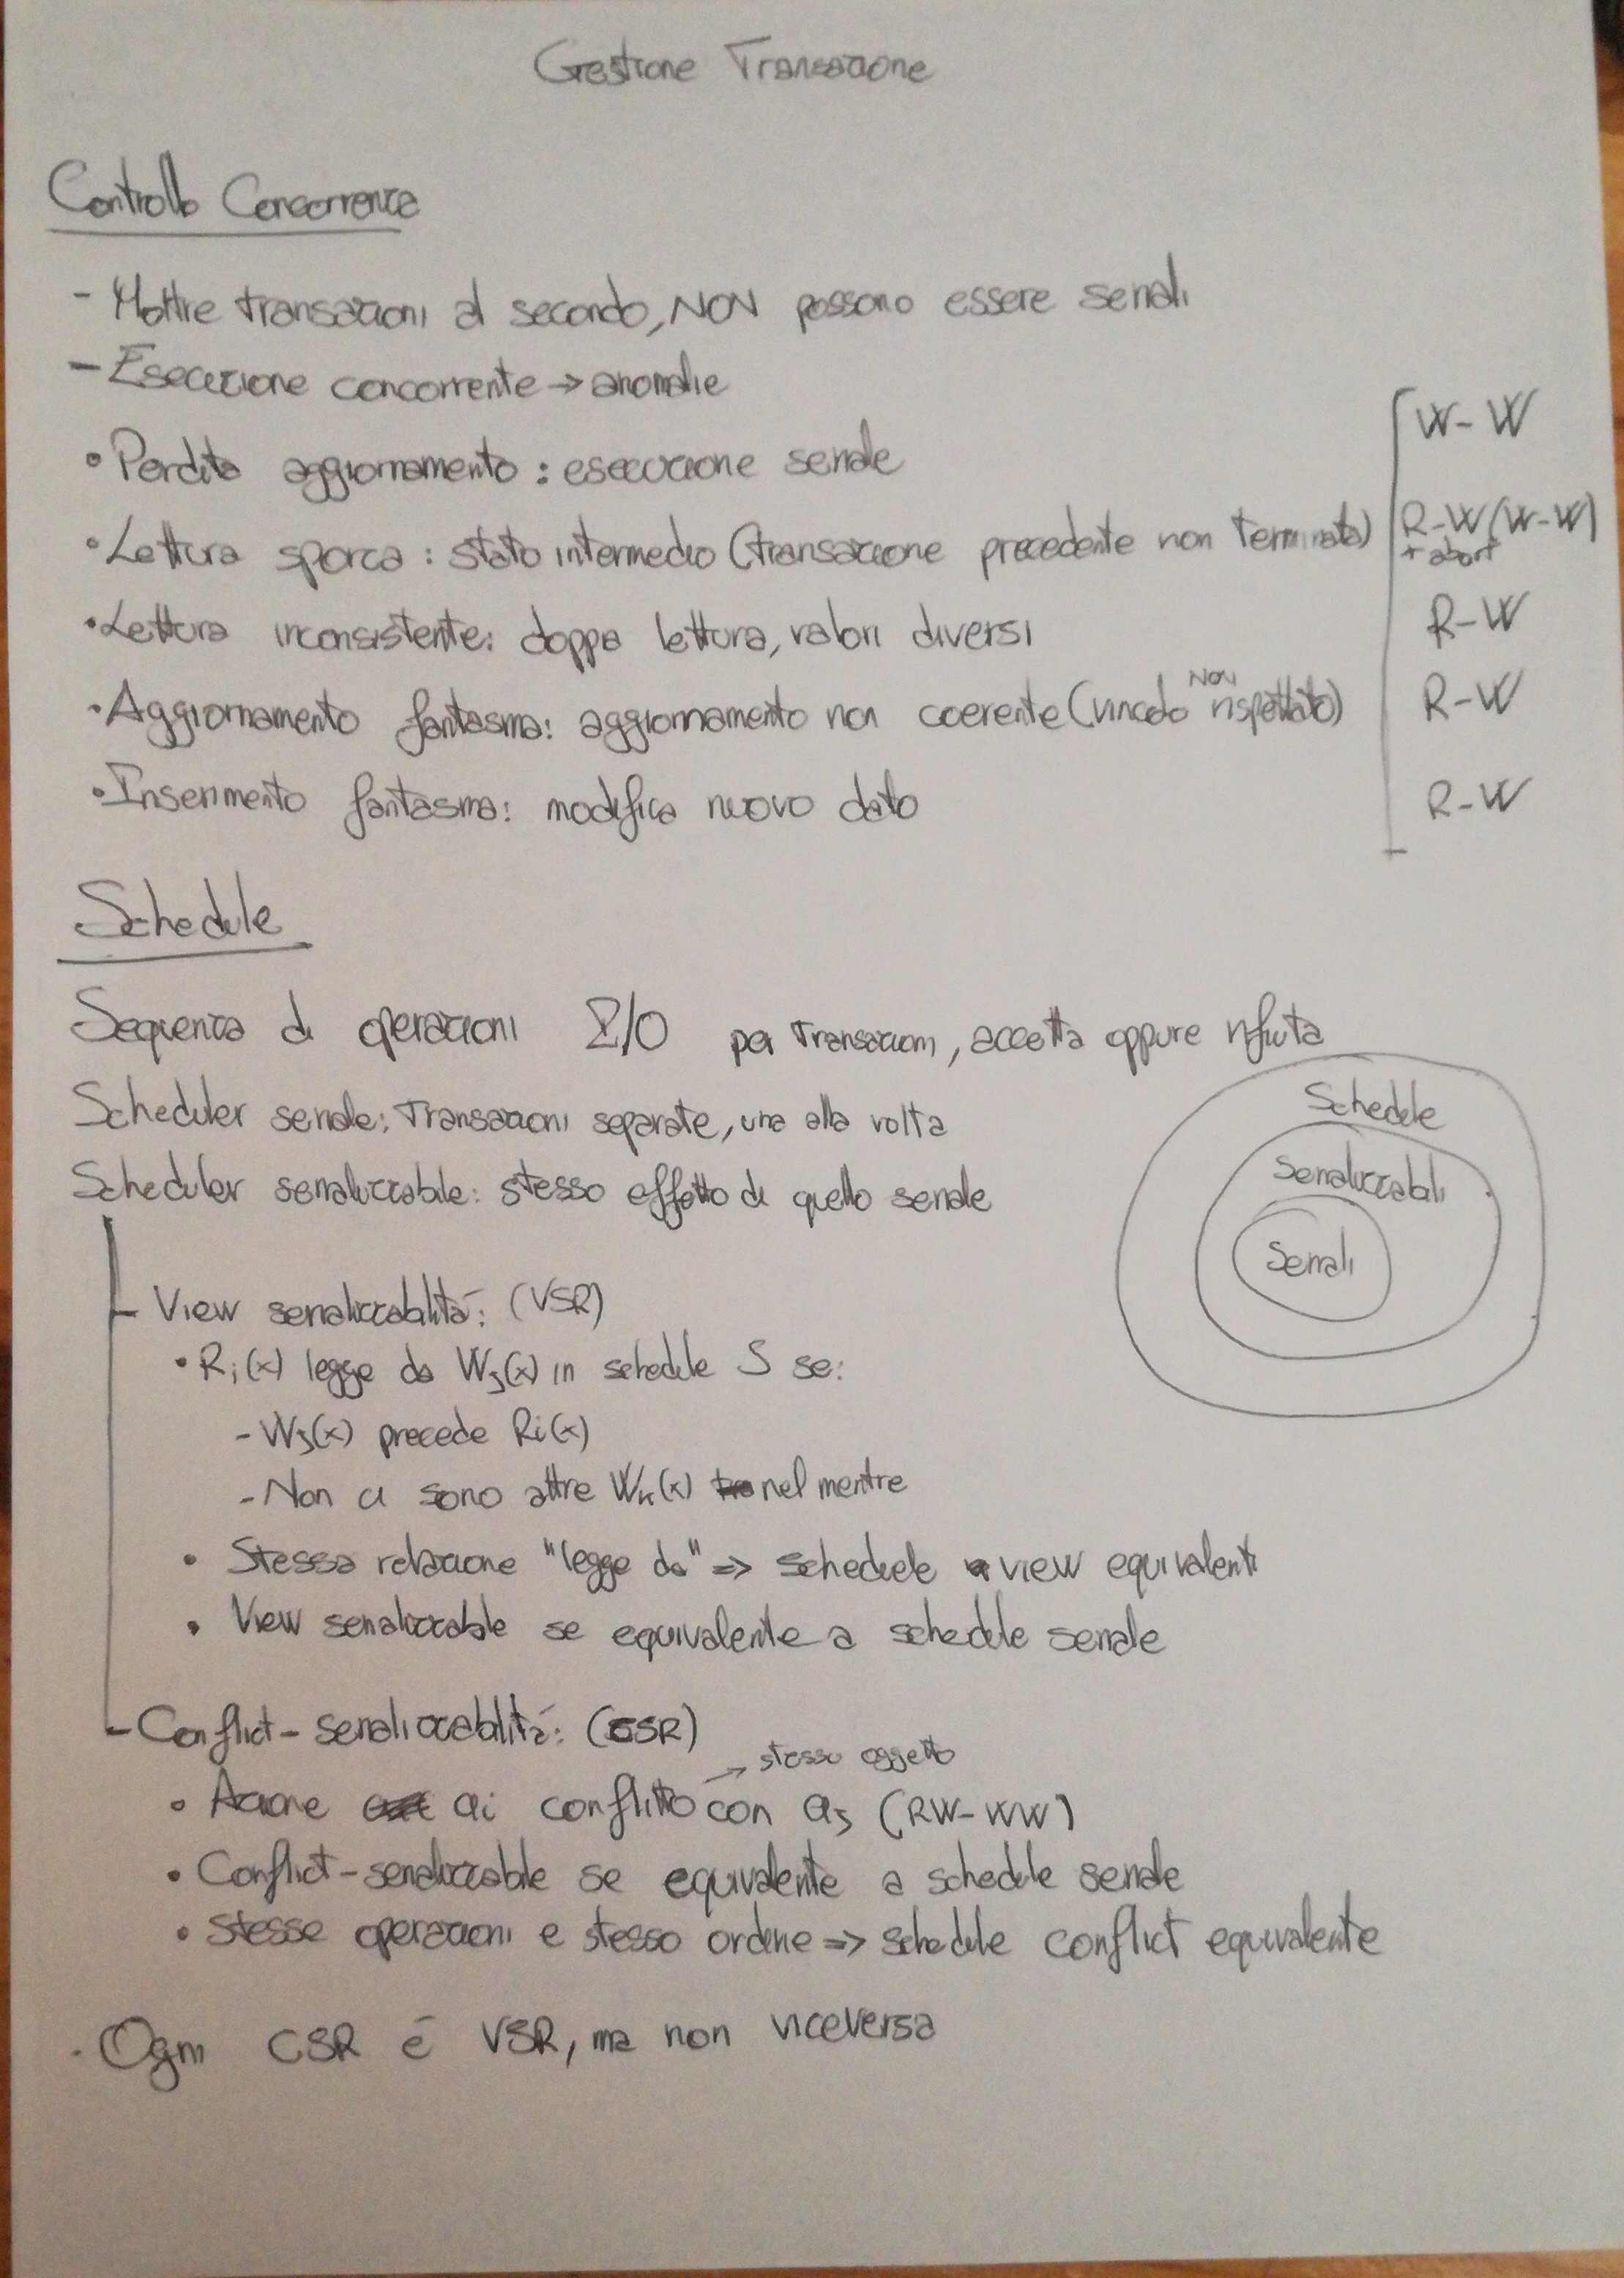 Gestione Transazione
Controllo Concorrenza
- Moltre transazioni al secondo, NON possono essere seriali
- Esecuzione concorrente → anomalie
• Perdita aggiornamento : esecuzione seriale
W-W
• Lettura sporca : stato intermedio (transazione precedente non terminata)
R-W (W-W)
+ abort
• Lettura inconsistente: doppia lettura, valori diversi
R-W
• Aggiornamento fantasma: aggiornamento non coerente (vincolo NON rispettato)
R-W
• Inserimento fantasma: modifica nuovo dato
R-W
Schedule
Sequenza di operazioni I/O per transazioni, accetta oppure rifiuta
Scheduler seriale: Transazioni separate, una alla volta
Scheduler serializzabile: stesso effetto di quello seriale
Schedule
Serializzabili
Seriali
- View serializzabilità: (VSR)
• Ri(x) legge da Wj(x) in schedule S se:
- Wj(x) precede Ri(x)
- Non ci sono altre Wk(x) nel mentre
• Stessa relazione "legge da" => schedule view equivalenti
• View serializzabile se equivalente a schedule seriale
- Conflict-serializzabilità: (CSR)
→ stesso oggetto
• Azione ai conflitto con aj (RW-WW)
• Conflict-serializzabile se equivalente a schedule seriale
• Stesse operazioni e stesso ordine => schedule conflict equivalente
• Ogni CSR é VSR, ma non viceversa